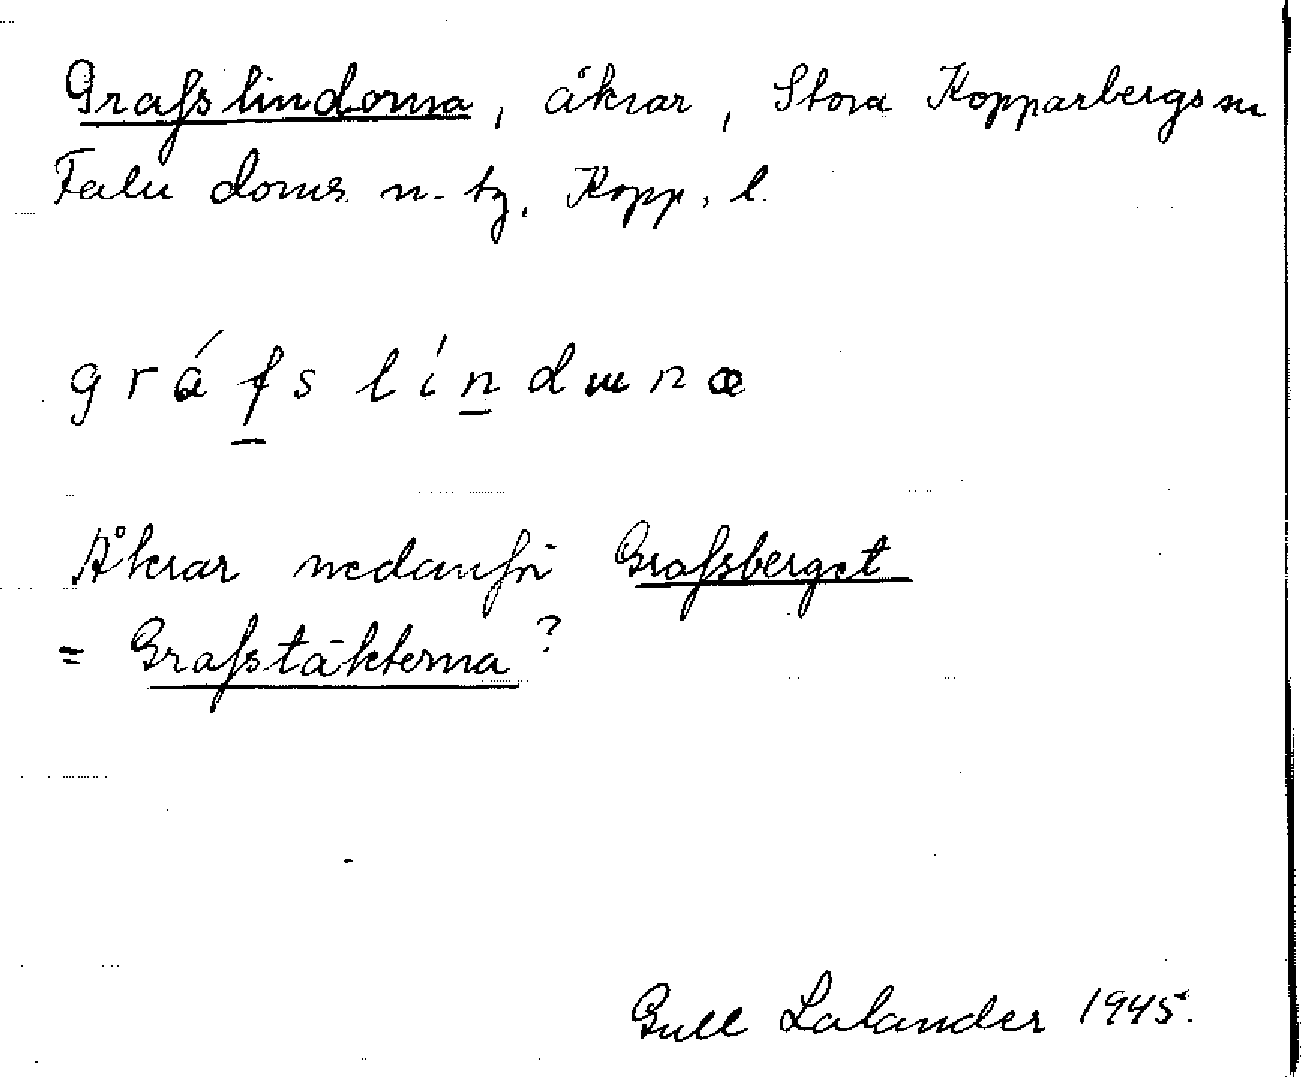 Grafslindorna, åkrar, Stora Kopparbergs sn
Falu doms n. tg. Kopp. l.
gráfslíndɯnæ
Åkrar nedanför Grafsberget
= Grafstäkterna?
Gull Lalander 1945.